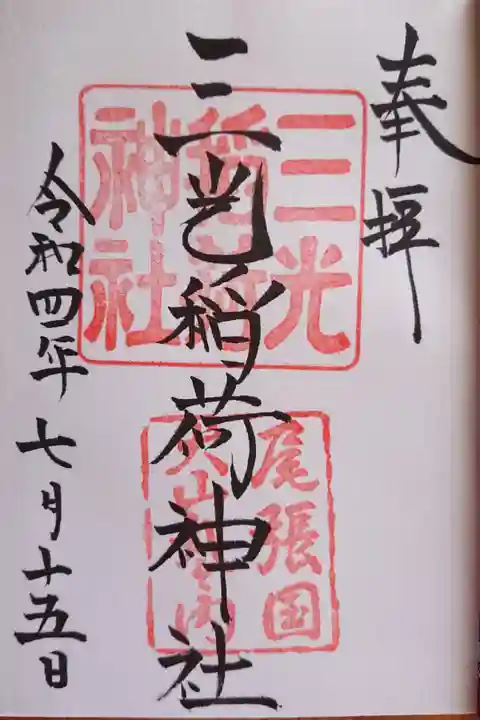 奉拝
三光稲荷神社
三光
稲荷
神社
尾張国
犬山城内
令和四年七月十五日